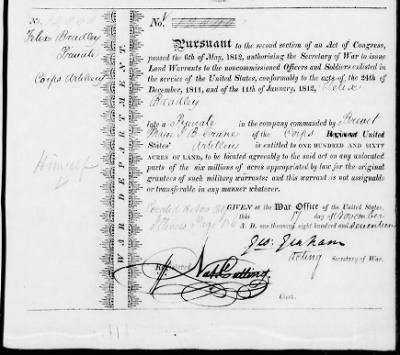 No.
Felix Bradley
Private
Corps Artillery
Himself
WAR DEPARTMENT.
No.
Pursuant to the second section of an Act of Congress,
passed the 6th of May, 1812, authorising the Secretary of War to issue
Land Warrants to the noncommissioned Officers and Soldiers enlisted in
the service of the United States, conformably to the acts of the 24th of
December, 1811, and of the 11th of January, 1812, Felix
Bradley
late a Private in the company commanded by Brevet
Major I B Crane of the Corps Regiment United
States' Artillery is entitled to ONE HUNDRED AND SIXTY
ACRES OF LAND, to be located agreeably to the said act on any unlocated
parts of the six millions of acres appropriated by law for the original
grantees of such military warrants; and this warrant is not assignable
or transferable in any manner whatever.
GIVEN at the War Office of the United States,
this 17 day of November
A. D. one thousand eight hundred and seventeen
Illinois Page
Geo: Graham
Acting Secretary of War.
Nat Cutting
Clerk.